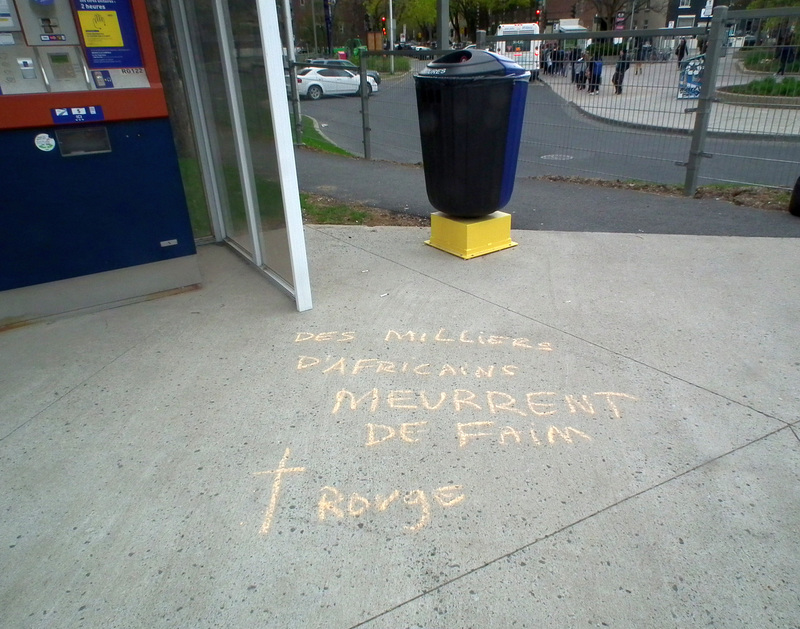 2 heures
R0122
ICI
DES MILLIERS
D'AFRICAINS
MEURRENT
DE FAIM
† ROUGE